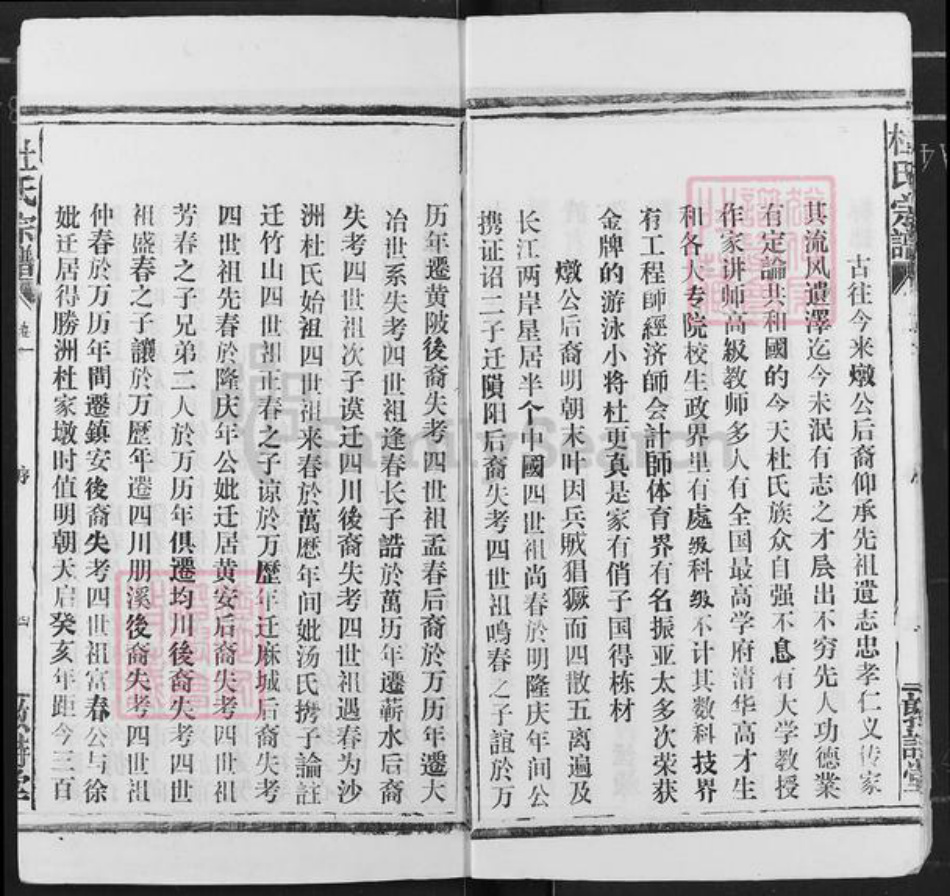 杜氏宗譜
古往今来燉公后裔仰承先祖遺志忠孝仁义传家
其流风遺澤迄今未泯有志之才辰出不穷先人功德業
有定論共和國的今天杜氏族众自强不息有大学教授
作家讲师高級教师多人有全国最高学府清华高才生
和各大专院校生政界里有處级科级不计其数科技界
有工程師經济師会計師体育界有名振亚太多次荣获
金牌的游泳小将杜更真是家有俏子国得栋材
燉公后裔明朝末叶因兵贼猖獗而四散五离遍及
长江两岸星居半个中國四世祖尚春於明隆庆年间公
携证诏二子迁陨阳后裔失考四世祖鳴春之子誼於万
历年遷黄陂後裔失考四世祖孟春后裔於万历年遷大
冶世系失考四世祖逢春长子誥於萬历年遷蕲水后裔
失考四世祖次子谟迁四川後裔失考四世祖遇春为沙
洲杜氏始祖四世祖来春於萬歷年间妣汤氏携子論註
迁竹山四世祖正春之子谅於万歷年迁麻城后裔失考
四世祖先春於隆庆年公妣迁居黄安后裔失考四世祖
芳春之子兄弟二人於万历年俱遷均川後裔失考四世
祖盛春之子讓於万歷年遷四川朋溪後裔失考四世祖
仲春於万历年間遷鎮安後裔失考四世祖富春公与徐
妣迁居得勝洲杜家墩时值明朝天启癸亥年距今三百
杜氏宗譜
FamilySearch